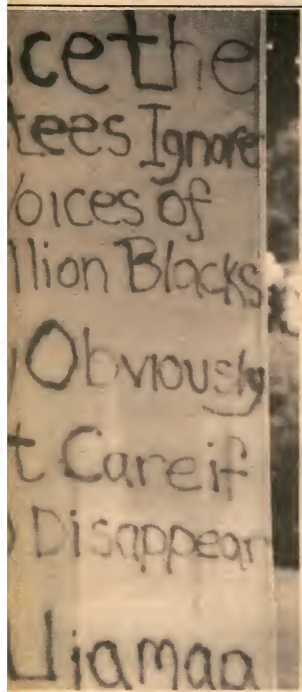 ce the
tees Ignore
oices of
llion Blacks
Obviously
t Care if
Disappear
Ujamaa